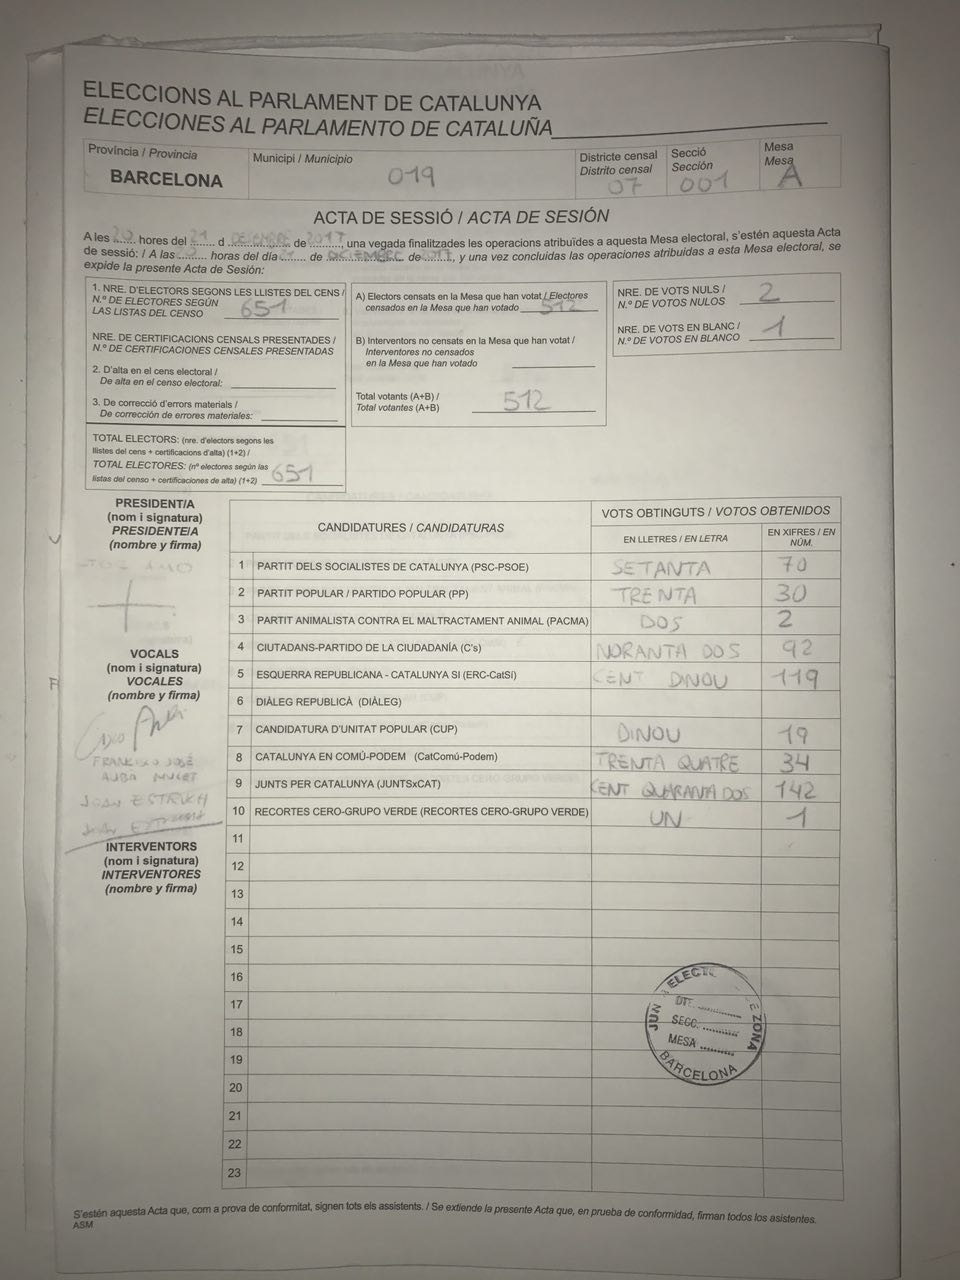 ELECCIONS AL PARLAMENT DE CATALUNYA
ELECCIONES AL PARLAMENTO DE CATALUÑA
Província / Provincia
BARCELONA
Municipi / Municipio
019
Districte censal
Distrito censal
07
Secció
Sección
001
Mesa
Mesa
A
ACTA DE SESSIÓ / ACTA DE SESIÓN
A les 20 hores del 21 d DESEMBRE de 2017, una vegada finalitzades les operacions atribuïdes a aquesta Mesa electoral, s'estén aquesta Acta
de sessió: / A las horas del día de DICIEMBRE de 2017, y una vez concluidas las operaciones atribuidas a esta Mesa electoral, se
expide la presente Acta de Sesión:
1. NRE. D'ELECTORS SEGONS LES LLISTES DEL CENS /
N.º DE ELECTORES SEGÚN
LAS LISTAS DEL CENSO 651
NRE. DE CERTIFICACIONS CENSALS PRESENTADES /
N.º DE CERTIFICACIONES CENSALES PRESENTADAS
2. D'alta en el cens electoral /
De alta en el censo electoral:
3. De correcció d'errors materials /
De corrección de errores materiales:
TOTAL ELECTORS: (nre. d'electors segons les
llistes del cens + certificacions d'alta) (1+2) /
TOTAL ELECTORES: (nº electores según las
listas del censo + certificaciones de alta) (1+2) 651
A) Electors censats en la Mesa que han votat / Electores
censados en la Mesa que han votado 512
B) Interventors no censats en la Mesa que han votat /
Interventores no censados
en la Mesa que han votado
Total votants (A+B) /
Total votantes (A+B) 512
NRE. DE VOTS NULS /
N.º DE VOTOS NULOS 2
NRE. DE VOTS EN BLANC /
N.º DE VOTOS EN BLANCO 1
PRESIDENT/A
(nom i signatura)
PRESIDENTE/A
(nombre y firma)
VOCALS
(nom i signatura)
VOCALES
(nombre y firma)
FRANCISCO JOSÉ
JOAN
INTERVENTORS
(nom i signatura)
INTERVENTORES
(nombre y firma)
CANDIDATURES / CANDIDATURAS
VOTS OBTINGUTS / VOTOS OBTENIDOS
EN LLETRES / EN LETRA
EN XIFRES / EN
NÚM.
1 PARTIT DELS SOCIALISTES DE CATALUNYA (PSC-PSOE) SETANTA 70
2 PARTIT POPULAR / PARTIDO POPULAR (PP) TRENTA 30
3 PARTIT ANIMALISTA CONTRA EL MALTRACTAMENT ANIMAL (PACMA) DOS 2
4 CIUTADANS-PARTIDO DE LA CIUDADANÍA (C's) NORANTA DOS 92
5 ESQUERRA REPUBLICANA - CATALUNYA SI (ERC-CatSí) CENT DINOU 119
6 DIÀLEG REPUBLICÀ (DIÀLEG)
7 CANDIDATURA D'UNITAT POPULAR (CUP) DINOU 19
8 CATALUNYA EN COMÚ-PODEM (CatComú-Podem) TRENTA QUATRE 34
9 JUNTS PER CATALUNYA (JUNTSxCAT) CENT QUARANTA DOS 142
10 RECORTES CERO-GRUPO VERDE (RECORTES CERO-GRUPO VERDE) UN 1
11
12
13
14
15
16
17
18
19
20
21
22
23
ELECT
JUN
ZONA
DTE.
SECC.
MESA
BARCELONA
S'estén aquesta Acta que, com a prova de conformitat, signen tots els assistents. / Se extiende la presente Acta que, en prueba de conformidad, firman todos los asistentes.
ASM